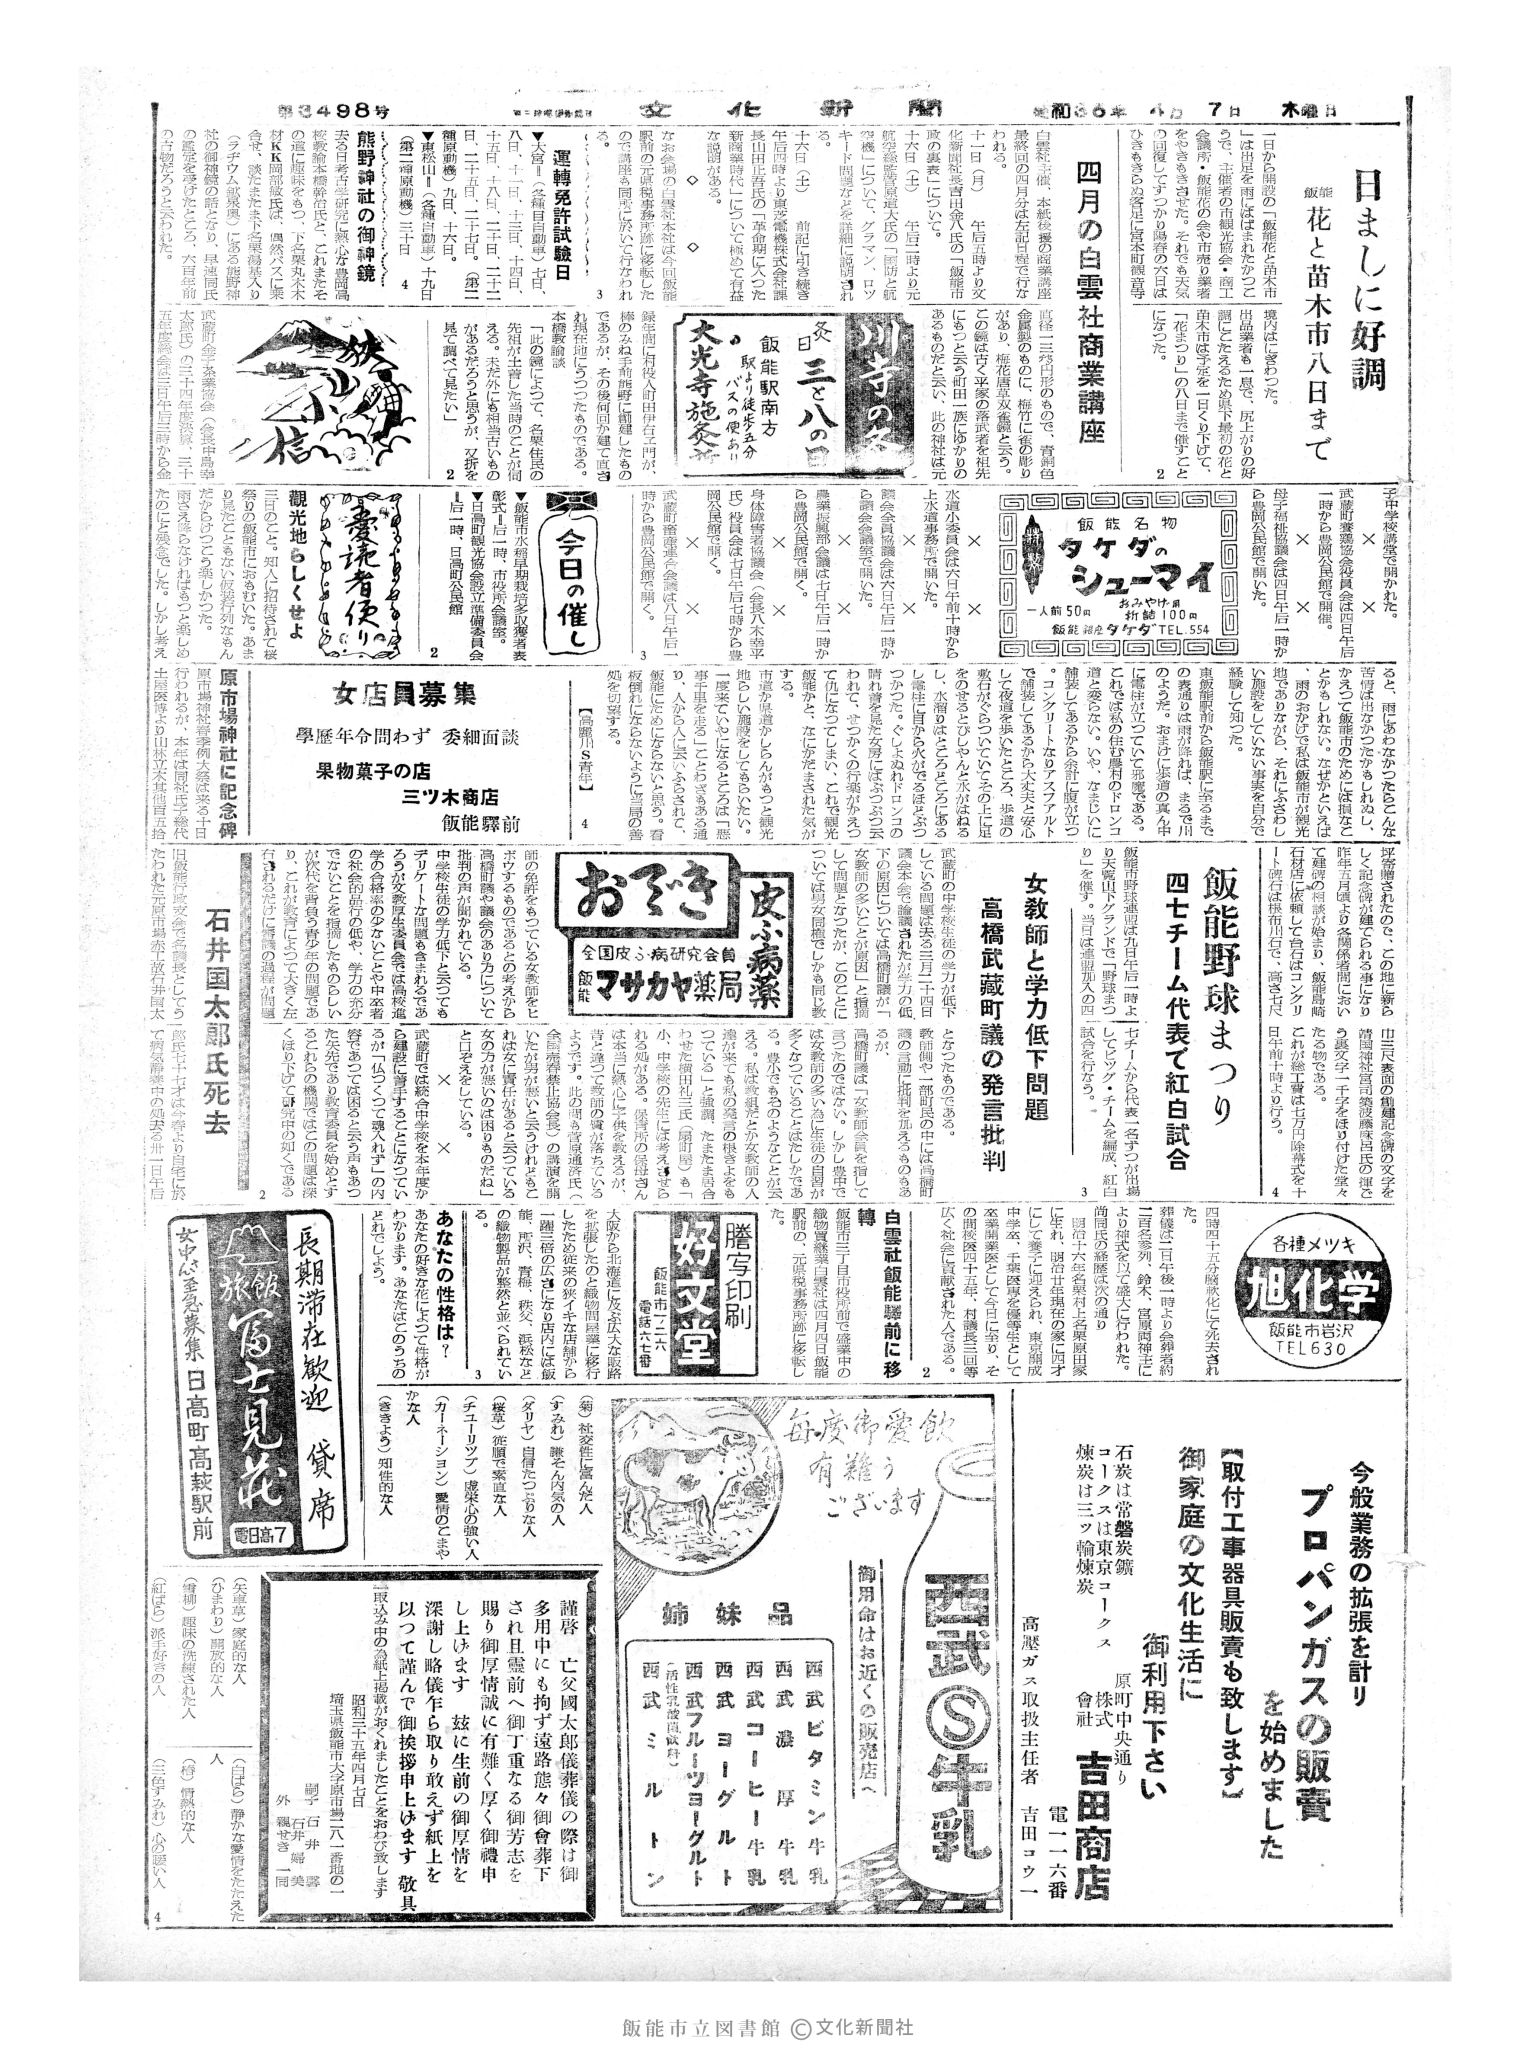 第3498号
文化新聞
昭和35年4月7日 木曜日
日ましに好調
飯能 花と苗木市八日まで
一日から開設の「飯能花と苗木市
」は出足を雨にはばまれたかつこ
うで、主催者の市観光協会・商工
会議所・飯能花の会や市売り業者
をやきもきさせた。それでも天気
の回復しですつかり陽春の六日は
ひきもきらぬ客足に宮本町観音寺
境内はにぎわつた。
出品業者も一息で、尻上がりの好
調にこたえるため県下最初の花と
苗木市は予定を一日くり下げて、
「花まつり」の八日まで催すこと
になつた。
2
四月の白雲社商業講座
白雲社主催、本紙後援の商業講座
最終回の四月分は左記日程で行な
われる。
十一日（月） 午后五時より文
化新聞社長吉田金八氏の「飯能市
政の裏表」について。
十六日（土） 午后二時より元
航空総監菅原道大氏の「国防と航
空機」について、グラマン、ロッ
キード問題などを詳細に説明され
る。
十六日（土） 前記に引き続き
午后四時より東芝電機株式会社課
長山田正吾氏の「革命期に入つた
新商業時代」について極めて有益
な説明がある。
◇ ◇
なお会場の白雲社本社は今回飯能
駅前の元県税事務所跡に移転した
ので講座も同所に於いて行なわれ
る。
3
運轉免許試驗日
▼大宮＝（各種目自動車）七日、
八日、十一日、十三日、十四日、
十五日、十八日、二十日、二十二
日、二十五日、二十七日。（第二
種原動機）九日、十六日。
▼東松山＝（各種自動車）十九日
（第二種原動機）三十日
4
熊野神社の御神鏡
去る日考古学研究に熱心な豊岡高
校教諭本橋幹治氏と、これまたそ
の道に趣味をもつ、下名栗丸木木
材KK岡部敏氏は、偶然バスに乗
合せ、談たまたま下名栗湯基入り
（ラヂウム鉱泉奥）にある熊野神
社の御神鏡の話となり、早速同氏
の鑑定を受けたところ、六百年前
の古物だろうと云われた。
直径一三糎円形のもので、青銅色
金属製のものに、梅竹に雀の彫り
があり、梅花唐草双雀鏡と云う。
この鏡は古く平家の落武者を祖先
にもつと云う町田一族にゆかりの
あるものだと云い、此の神社は元
禄年間に村役人町田伊右ヱ門が、
棒のみね手前熊野に創建したもの
であるが、その後何回か建て直さ
れ現在地にうつつたものである。
本橋教諭談
「此の鏡によつて、名栗住民の
先祖が土着した当時のことが伺
える。未だ外にも相当古いもの
があるだろうと思うが、又折を
見て調べて見たい」
2
川寺の灸
灸日 三と八の日
飯能駅南方
駅より徒歩五分
バスの便あり
大光寺施灸所
狭山小信
武蔵町金子茶業協会（会長中島幸
太郎氏）の三十四年度決算、三十
五年度総会は三日午后三時から金
子中学校講堂で開かれた。
× ×
武蔵町養鶏協会役員会は四日午后
一時から豊岡公民館で開催。
× ×
母子福祉協議会は四日午后一時か
ら豊岡公民館で開いた。
飯能名物
タケダの
シューマイ
一人前50円
おみやげ用
折詰100円
飯能銀座 タケダ TEL.554
水道小委員会は六日午前十時から
上水道事務所で開いた。
× ×
議会全員協議会は六日午后一時か
ら議会会議室で開いた。
× ×
農業振興部会議は七日午后一時か
ら豊岡公民館で開く。
× ×
身体障害者協議会（会長八木幸平
氏）役員会は七日午后七時から豊
岡公民館で開く。
× ×
武蔵町蓄産連合会議は八日午后一
時から豊岡公民館で開く。
3
今日の催し
▼飯能市水稲早期栽培多収穫者表
彰式＝后一時、市役所会議室。
▼日高町観光協会設立準備委員会
＝后一時、日高町公民館
2
愛読者便り
観光地らしくせよ
三日のこと。知人に招待されて桜
祭りの飯能市におもむいた。あま
り見たこともない仮装行列なもん
だからけつこう楽しかつた。
雨さえ降らなければもつと楽しめ
たのにと残念でした。しかし考え
ると、雨にあわなかつたらこんな
苦情は出なかつたかもしれぬし、
かえつて飯能市のためには損なこ
とかもしれない。なぜかといえば
、雨のおかげで私は飯能市が観光
地でありながら、それにふさわし
い施設をしていない事実を自分で
経験して知つた。
東飯能駅前から飯能駅に至るまで
の表通りは雨が降れば、まるで川
のようだ。おまけに歩道の真ん中
に電柱が立つていて邪魔である。
これでは私の住む農村のドロンコ
道と変らない。いや、なまじいに
舗装してあるから余計に腹が立つ
。コンクリートなりアスファルト
で舗装してあるから大丈夫と安心
して夜道を歩いたところ、歩道の
敷石がぐらついていてその上に足
をのせるとぴしやんと水がはねる
し、水溜りはところどころにある
し電柱に目から火がでるほどぶつ
つかつた。ぐしよぬれドロンコの
晴れ着を見た女房にはぶつぶつ云
われて、せつかくの行楽がかえつ
て仇になつてしまい、これで観光
飯能かと、なにかだまされた気が
する。
市道か県道かしらんがもつと観光
地らしい施設をしてもらいたい。
一度来ていやになるところは「悪
事千里を走る」ことわざもある通
り、人から人に云いふらされて、
飯能にためにならないと思う。看
板倒れにならないように当局の善
処を切望する。
【高麗川S青年】
4
女店員募集
学歴年令問わず 委細面談
果物菓子の店
三ツ木商店
飯能驛前
原市場神社に記念碑
原市場神社春季例大祭は来る十日
行われるが、本年は同社氏子総代
土屋医博より山林立木其他百五拾
坪寄贈されたので、この地に新ら
しく記念碑が建てられる事になり
昨年五月頃より各関係者間におい
て建碑の相談が始まり、飯能島崎
石材店に依頼して台石はコンクリ
ート碑石は根布川石で、高さ七尺
巾三尺表面の創建記念碑の文字を
靖国神社宮司築波藤麿呂氏の揮で
う裏文字一千字をほり付けた堂々
たる物である。
これが総工費は七万円除幕式を十
日午前十時より行う。
4
飯能野球まつり
四七チーム代表で紅白試合
飯能市野球連盟は九日午后一時よ
り天覧山下グランドで「野球まつ
り」を催す。当日は連盟加入の四
七チームから代表一名ずつが出場
してビッグ・チームを編成、紅白
試合を行なう。
3
女教師と学力低下問題
高橋武蔵町議の発言批判
武蔵町の中学校生徒の学力が低下
している問題は去る三月二十四日
議会本会で論議されたが学力の低
下の原因については高橋町議が「
女教師の多いことが原因」と指摘
して問題となつたが、このことに
ついては男女同権でしかも同じ教
師の免許をもつている女教師をヒ
ボウするものであるとの考えから
高橋町議や議会のあり方について
批判の声が聞かれている。
中学校生徒の学力低下と云つても
デリケートな問題も含まれるであ
ろうが文教厚生委員会では高校進
学の合格率の少ないことや中卒者
の社会的品行の低や、学力の充分
でないことを指摘したものらしい
が次代を背負う青少年の問題であ
り、これが教育によつて大きく左
右されるだけに審議の過程が問題
となつたものである。
教師側や一部町民の中には高橋町
議の言動に批判を加えるものもあ
るが、
高橋町議は「女教師全員を指して
言つたのではない。しかし豊中で
は女教師の多い為に生徒の自習が
多くなつていることはたしかであ
る。豊小でもそのようなことが云
える。私は教組だとか女教師の人
達が来ても私の発言の根きよをも
つている」と強調、たまたま居合
わせた横田礼三氏（扇町屋）も「
小、中学校の先生には考えさせら
れる処がある。保育所の保母さん
は本当に熱心に子供を教えるが、
昔と違つて教師の質が落ちている
ようです。此の間も菅原通済氏（
全国売春禁止協会長）の講演を聞
いたが男が悪いと云うけれどもこ
れは女に責任があると云つている
女の方が悪いのは困りものだね」
と口ぞえをしている。
× ×
武蔵町では統合中学校を本年度か
ら建設に着手することになつてい
るが「仏つくつて魂入れず」の内
容であつては困ると云う声もあつ
た矢先であり教育委員を始めとす
るこれらの機関ではこの問題は深
くほり下げて研究中の如くである
2
おでき
皮ふ病薬
全国皮ふ病研究会員
飯能 マサカヤ薬局
石井国太郎氏死去
旧飯能行政支会で名議長としてう
たわれた元原市場赤工故石井国太
郎氏七十七才は今春より自宅に於
て病気静養中の処去る卅一日午后
四時四十五分脳軟化にて死去され
た。
葬儀は二日午後一時より会葬者約
二百名参列、鈴木、宮原両神主に
より神式を以て盛大に行われた。
尚同氏の経歴は次の通り
明治十六年名栗村上名栗原田家
に生れ、明治廿年現在の家に四才
にして養子に迎えられ、東京開成
中学卒、千葉医専を優等生として
卒業開業医として今日に至り、そ
の間校医四十五年、村議長三回等
広く社会に貢献された人である。
2
各種メッキ
旭化学
飯能市岩沢
TEL630
白雲社飯能驛前に移轉
飯能市三丁目市役所前で盛業中の
織物買継業白雲社は四月四日飯能
駅前の、元県税事務所跡に移転し
た。
大阪から北海道に及ぶ広大な販路
を拡張したのと織物問屋業に移行
したため従来の狭イキな店舗から
一躍三倍の広さになり店内には飯
能、所沢、青梅、秩父、浜松など
の織物製品が整然と並べられてい
る。
3
謄写印刷
好文堂
飯能市一ノ二六
電話六七番
あなたの性格は？
あなたの好きな花によつて性格が
わかります。あなたはどのうちの
どれでしよう。
（菊）社交性に富んだ人
（すみれ）謙そん内気の人
（ダリヤ）自信たつぷりな人
（桜草）従順で素直な人
（チューリップ）虚栄心の強い人
（カーネーション）愛情のこまや
かな人
（ききよう）知性的な人
（矢車草）家庭的な人
（ひまわり）開放的な人
（雪柳）趣味の洗練された人
（紅ばら）派手好きの人
（白ばら）静かな愛情をたたえた
人
（椿）情熱的な人
（三色すみれ）心の暖い人
4
長期滞在歓迎 貸席
飯能 旅館 富士見荘
電日高7
女中さん至急募集 日高町高萩駅前
今般業務の拡張を計り
プロパンガスの販賣
を始めました
【取付工事器具販賣も致します】
御家庭の文化生活に
御利用下さい
石炭は常磐炭鑛
コークスは東京コークス
煉炭は三ッ輪煉炭
原町中央通り
株式會社 吉田商店
電一一六番
高壓ガス取扱主任者 吉田コウ一
毎度御愛飲
有難う
ございます
御用命はお近くの販売店へ
西武Ⓢ牛乳
姉妹品
西武ビタミン牛乳
西武濃厚牛乳
西武コーヒー牛乳
西武ヨーグルト
西武フルーツヨーグルト
（活性乳酸菌飲料）
西武ミルトン
謹啓 亡父國太郎儀葬儀の際は御
多用中にも拘ず遠路態々御會葬下
され且霊前へ御丁重なる御芳志を
賜り御厚情誠に有難く厚く御禮申
し上げます 玆に生前の御厚情を
深謝し略儀乍ら取り敢えず紙上を
以つて謹んで御挨拶申上げます 敬具
取込み中の為紙上掲載がおくれましたことをおわび致します
昭和三十五年四月七日
埼玉県飯能市大字原市場二八一番地の一
嗣子 石井
石井婦美
外 親せき一同
飯能市立図書館 ©文化新聞社